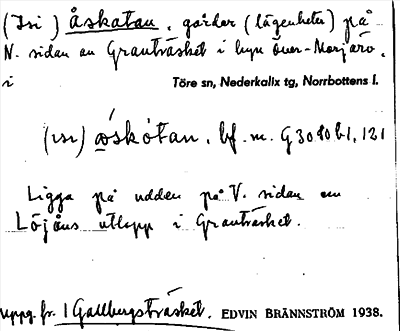 (Isi) Åskatan, gårdar (lägenheter) på
N. sidan av Granträsket i byn Över-Morjärv,
i Töre sn, Nederkalix tg, Norrbottens l.
(isi) åskòtan, bf. m. G 3080 b1, 121
Ligga på udden på V. sidan om
Löjåns utlopp i Granträsket.
uppg. fr. 1 Gallbergsträsket. EDVIN BRÄNNSTRÖM 1938.